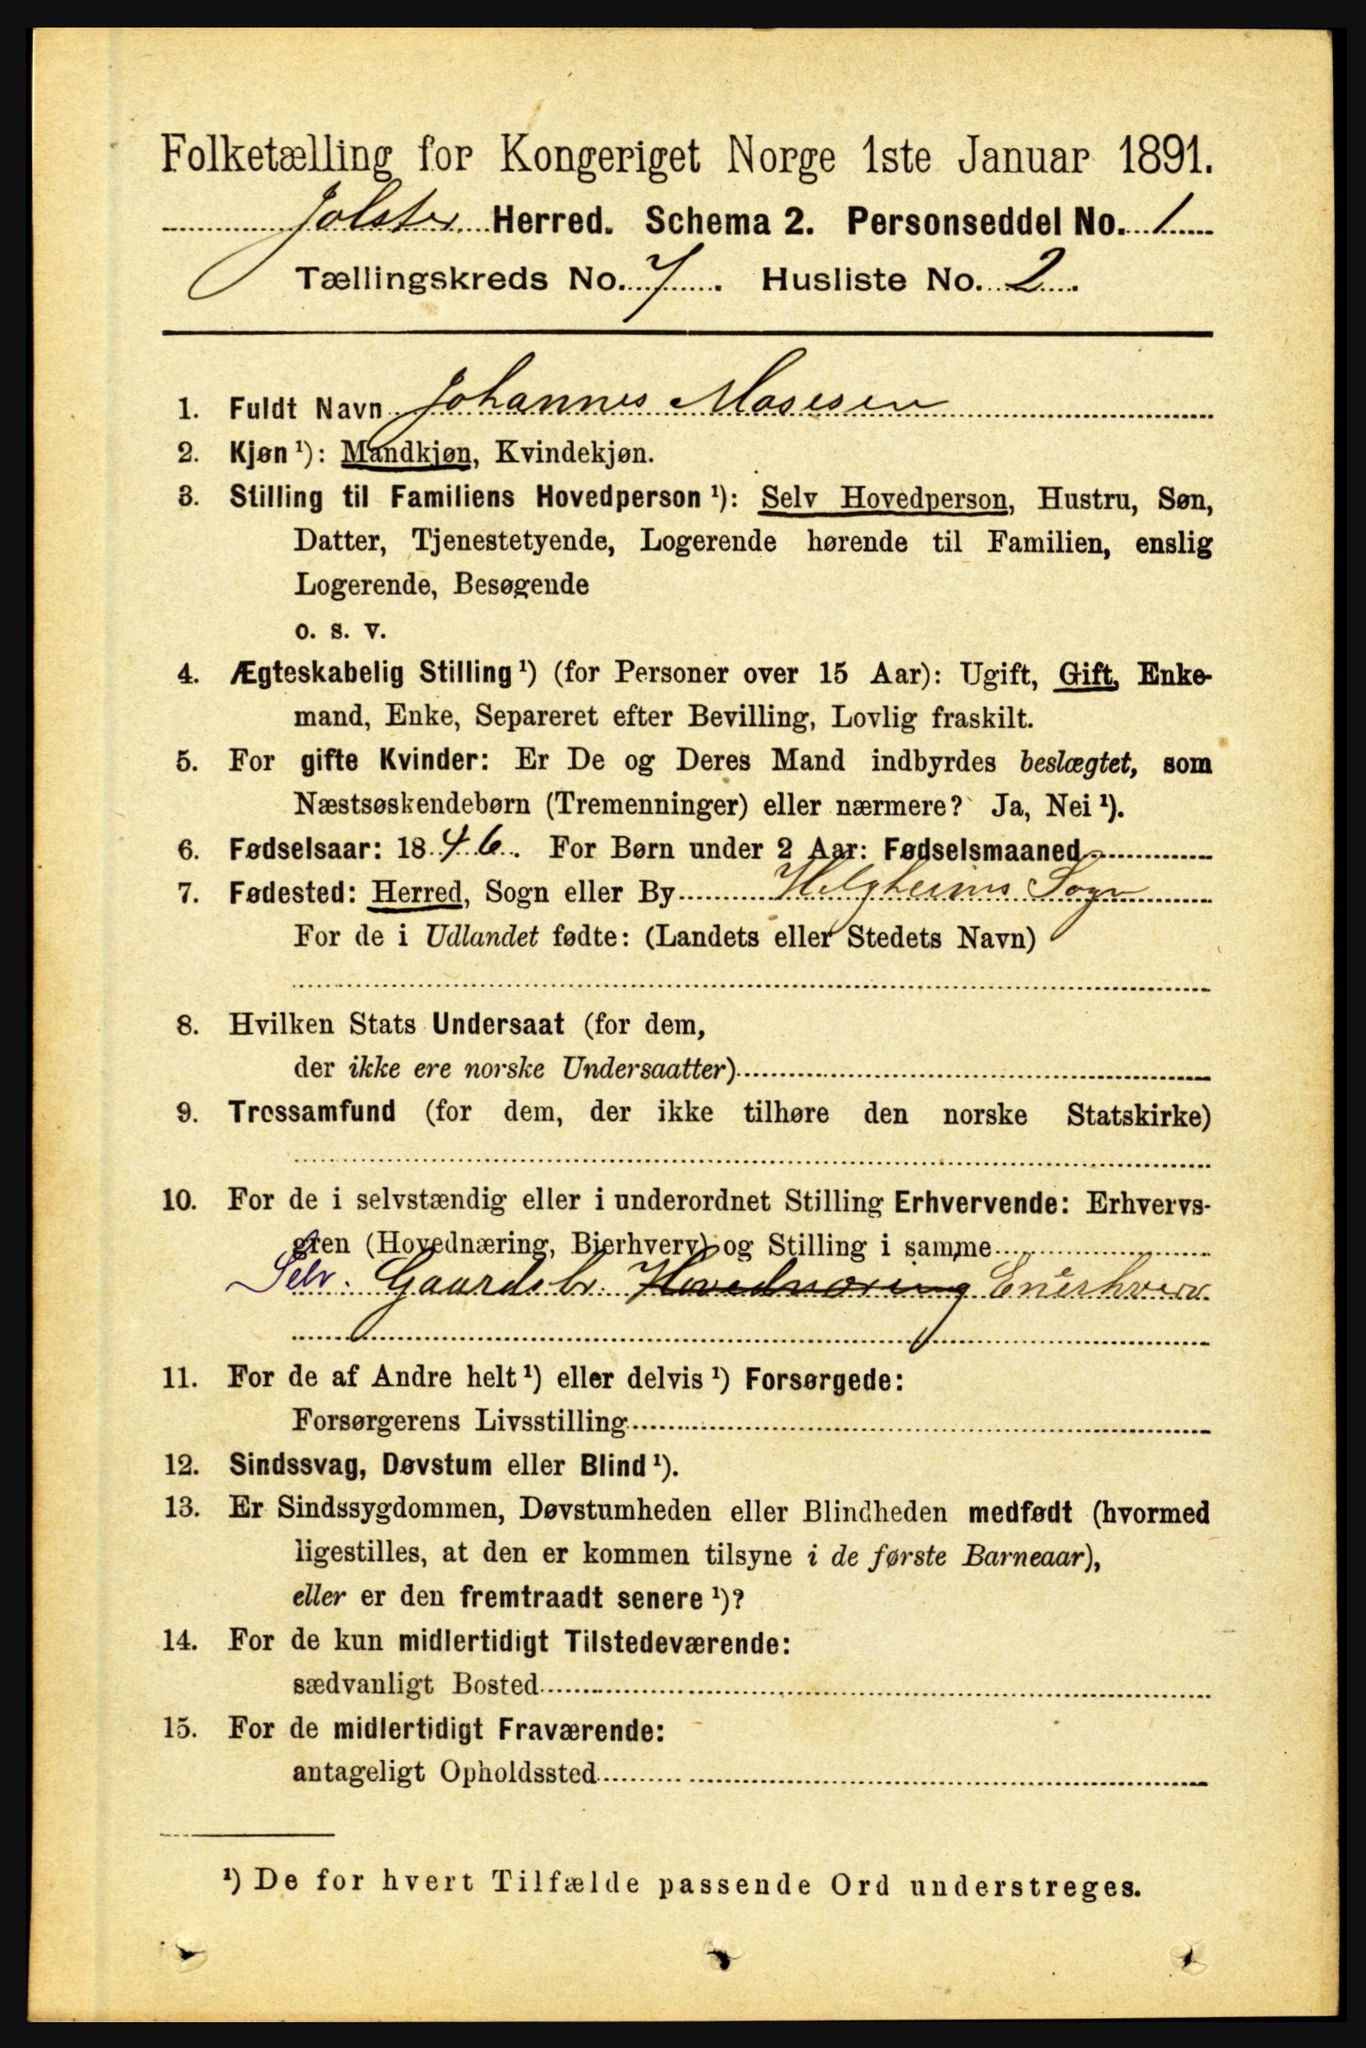 Folketælling for Kongeriget Norge 1ste Januar 1891.
Jolster Herred. Schema 2. Personseddel No. 1
Tællingskreds No. 7. Husliste No. 2.
1. Fuldt Navn Johannes Mosesen
2. Kjøn ¹): Mandkjøn, Kvindekjøn.
3. Stilling til Familiens Hovedperson ¹): Selv Hovedperson, Hustru, Søn,
Datter, Tjenestetyende, Logerende hørende til Familien, enslig
Logerende, Besøgende
o. s. v.
4. Ægteskabelig Stilling ¹) (for Personer over 15 Aar): Ugift, Gift, Enke-
mand, Enke, Separeret efter Bevilling, Lovlig fraskilt.
5. For gifte Kvinder: Er De og Deres Mand indbyrdes beslægtet, som
Næstsøskendebørn (Tremenninger) eller nærmere? Ja, Nei ¹).
6. Fødselsaar: 1846. For Børn under 2 Aar: Fødselsmaaned
7. Fødested: Herred, Sogn eller By Helgheims Sogn
For de i Udlandet fødte: (Landets eller Stedets Navn)
8. Hvilken Stats Undersaat (for dem,
der ikke ere norske Undersaatter)
9. Trossamfund (for dem, der ikke tilhøre den norske Statskirke)
10. For de i selvstændig eller i underordnet Stilling Erhvervende: Erhvervs-
gren (Hovednæring, Bierhverv) og Stilling i samme
Selv. Gaardsbr. Hovednæring Enerhverv
11. For de af Andre helt ¹) eller delvis ¹) Forsørgede:
Forsørgerens Livsstilling
12. Sindssvag, Døvstum eller Blind ¹).
13. Er Sindssygdommen, Døvstumheden eller Blindheden medfødt (hvormed
ligestilles, at den er kommen tilsyne i de første Barneaar),
eller er den fremtraadt senere ¹)?
14. For de kun midlertidigt Tilstedeværende:
sædvanligt Bosted
15. For de midlertidigt Fraværende:
antageligt Opholdssted
¹) De for hvert Tilfælde passende Ord understreges.